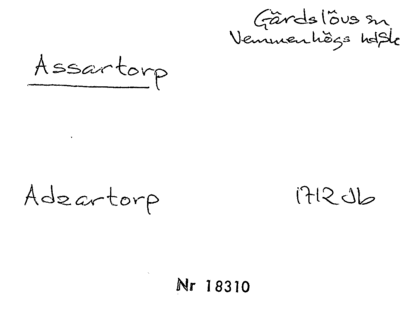 Gärdslövs sn
Vemmenhögs hd Sk
Assartorp
Adzartorp 1712 Jb
Nr 18310